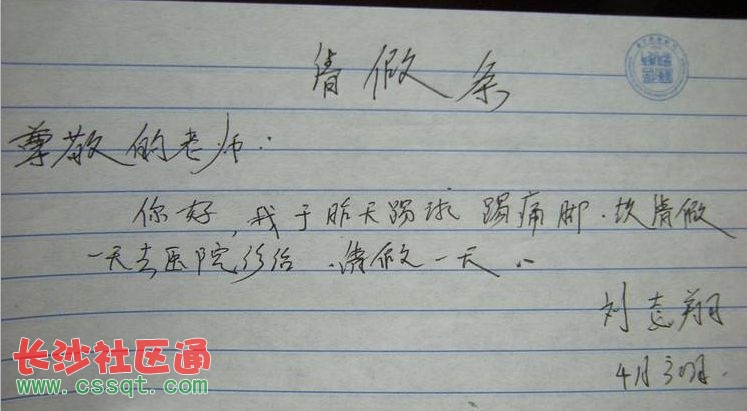 请假条
尊敬的老师:
你好,我于昨天踢球 踢痛脚.故请假
一天去医院诊治.请假一天..
刘志翔
4月30日.
长沙社区通
www.cssqt.com